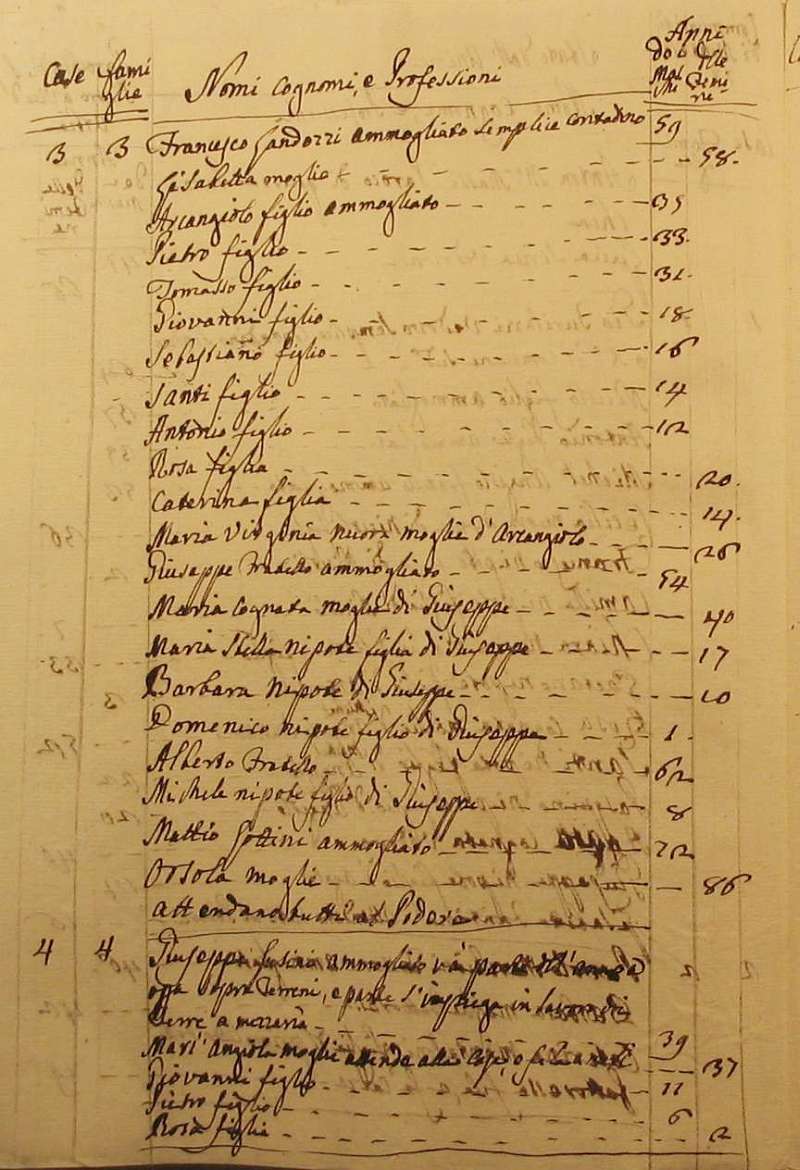 Case fami glie Nomi Cognomi, e Professioni Anni de i Mas chi delle Femi ne
3 3 Francesco Gandozzi ammogliato semplice contadino 59
Elisabetta moglie 58.
Arcangiolo figlio ammogliato 35
Pietro figlio 33
Tomasso figlio 31.
Giovanni figlio 18
Sebastiano figlio 16
Santi figlio 14
Antonio figlio 12
Rosa figlia 20.
Caterina figlia 14.
Maria Virginia nuora moglie d'Arcangiolo 26
Giuseppe Fratello ammogliato 54
Maria Cognata moglie di Giuseppe 40
Maria Stella nipote figlia di Giuseppe 17
Barbara nipote di Giuseppe 10
Domenico nipote figlio di Giuseppe 1.
Alberto Fratello 62
Michele nipote figlio di Giuseppe 8
Mattio Gottini ammogliato 72
Orsola moglie 86
attendano tutti al Podere
4 4 Giuseppe ammogliato và parte
opra sopra Terreni, e parte s'impiega in lavoro di
Terre a mezzaria 39
Mari' Angiola moglie attende 37
Giovanni figlio 11
Pietro figlio 6
Rosa figlia 2